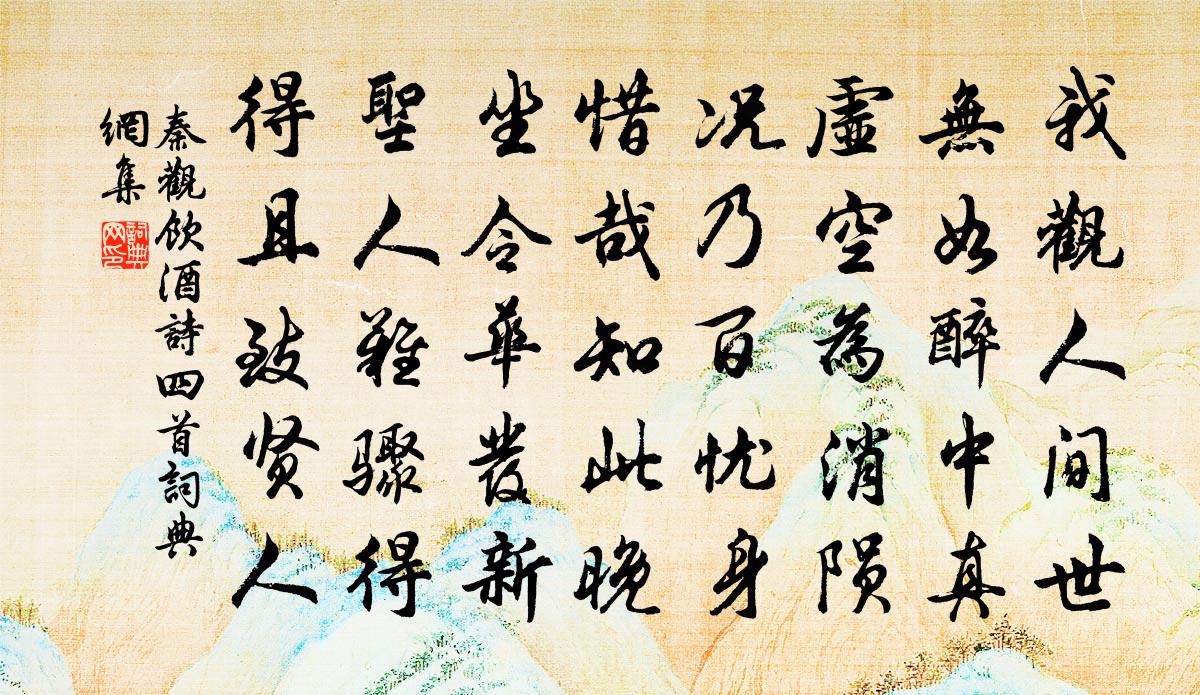 我觀人间世
無如醉中真
虛空為消陨
况乃百忧身
惜哉知此晚
坐令華發新
聖人難驟得
得且致贤人
秦觀飲酒詩四首詞典
網集
詞典
网印